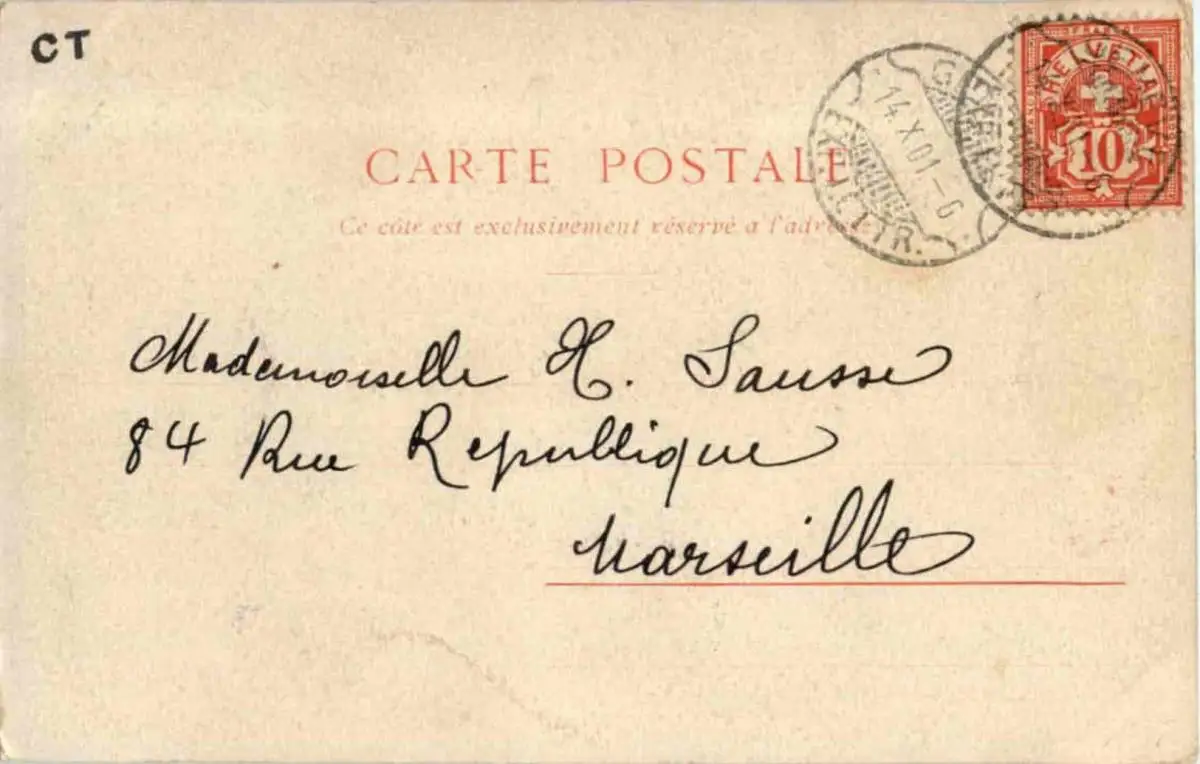 CT
FRANCO
HELVETIA
10
14.X.01.-6
EXP. LETTR.
CARTE POSTALE
Ce côté est exclusivement réservé à l'adresse
Mademoiselle H. Sausse
84 Rue Republique
Marseille